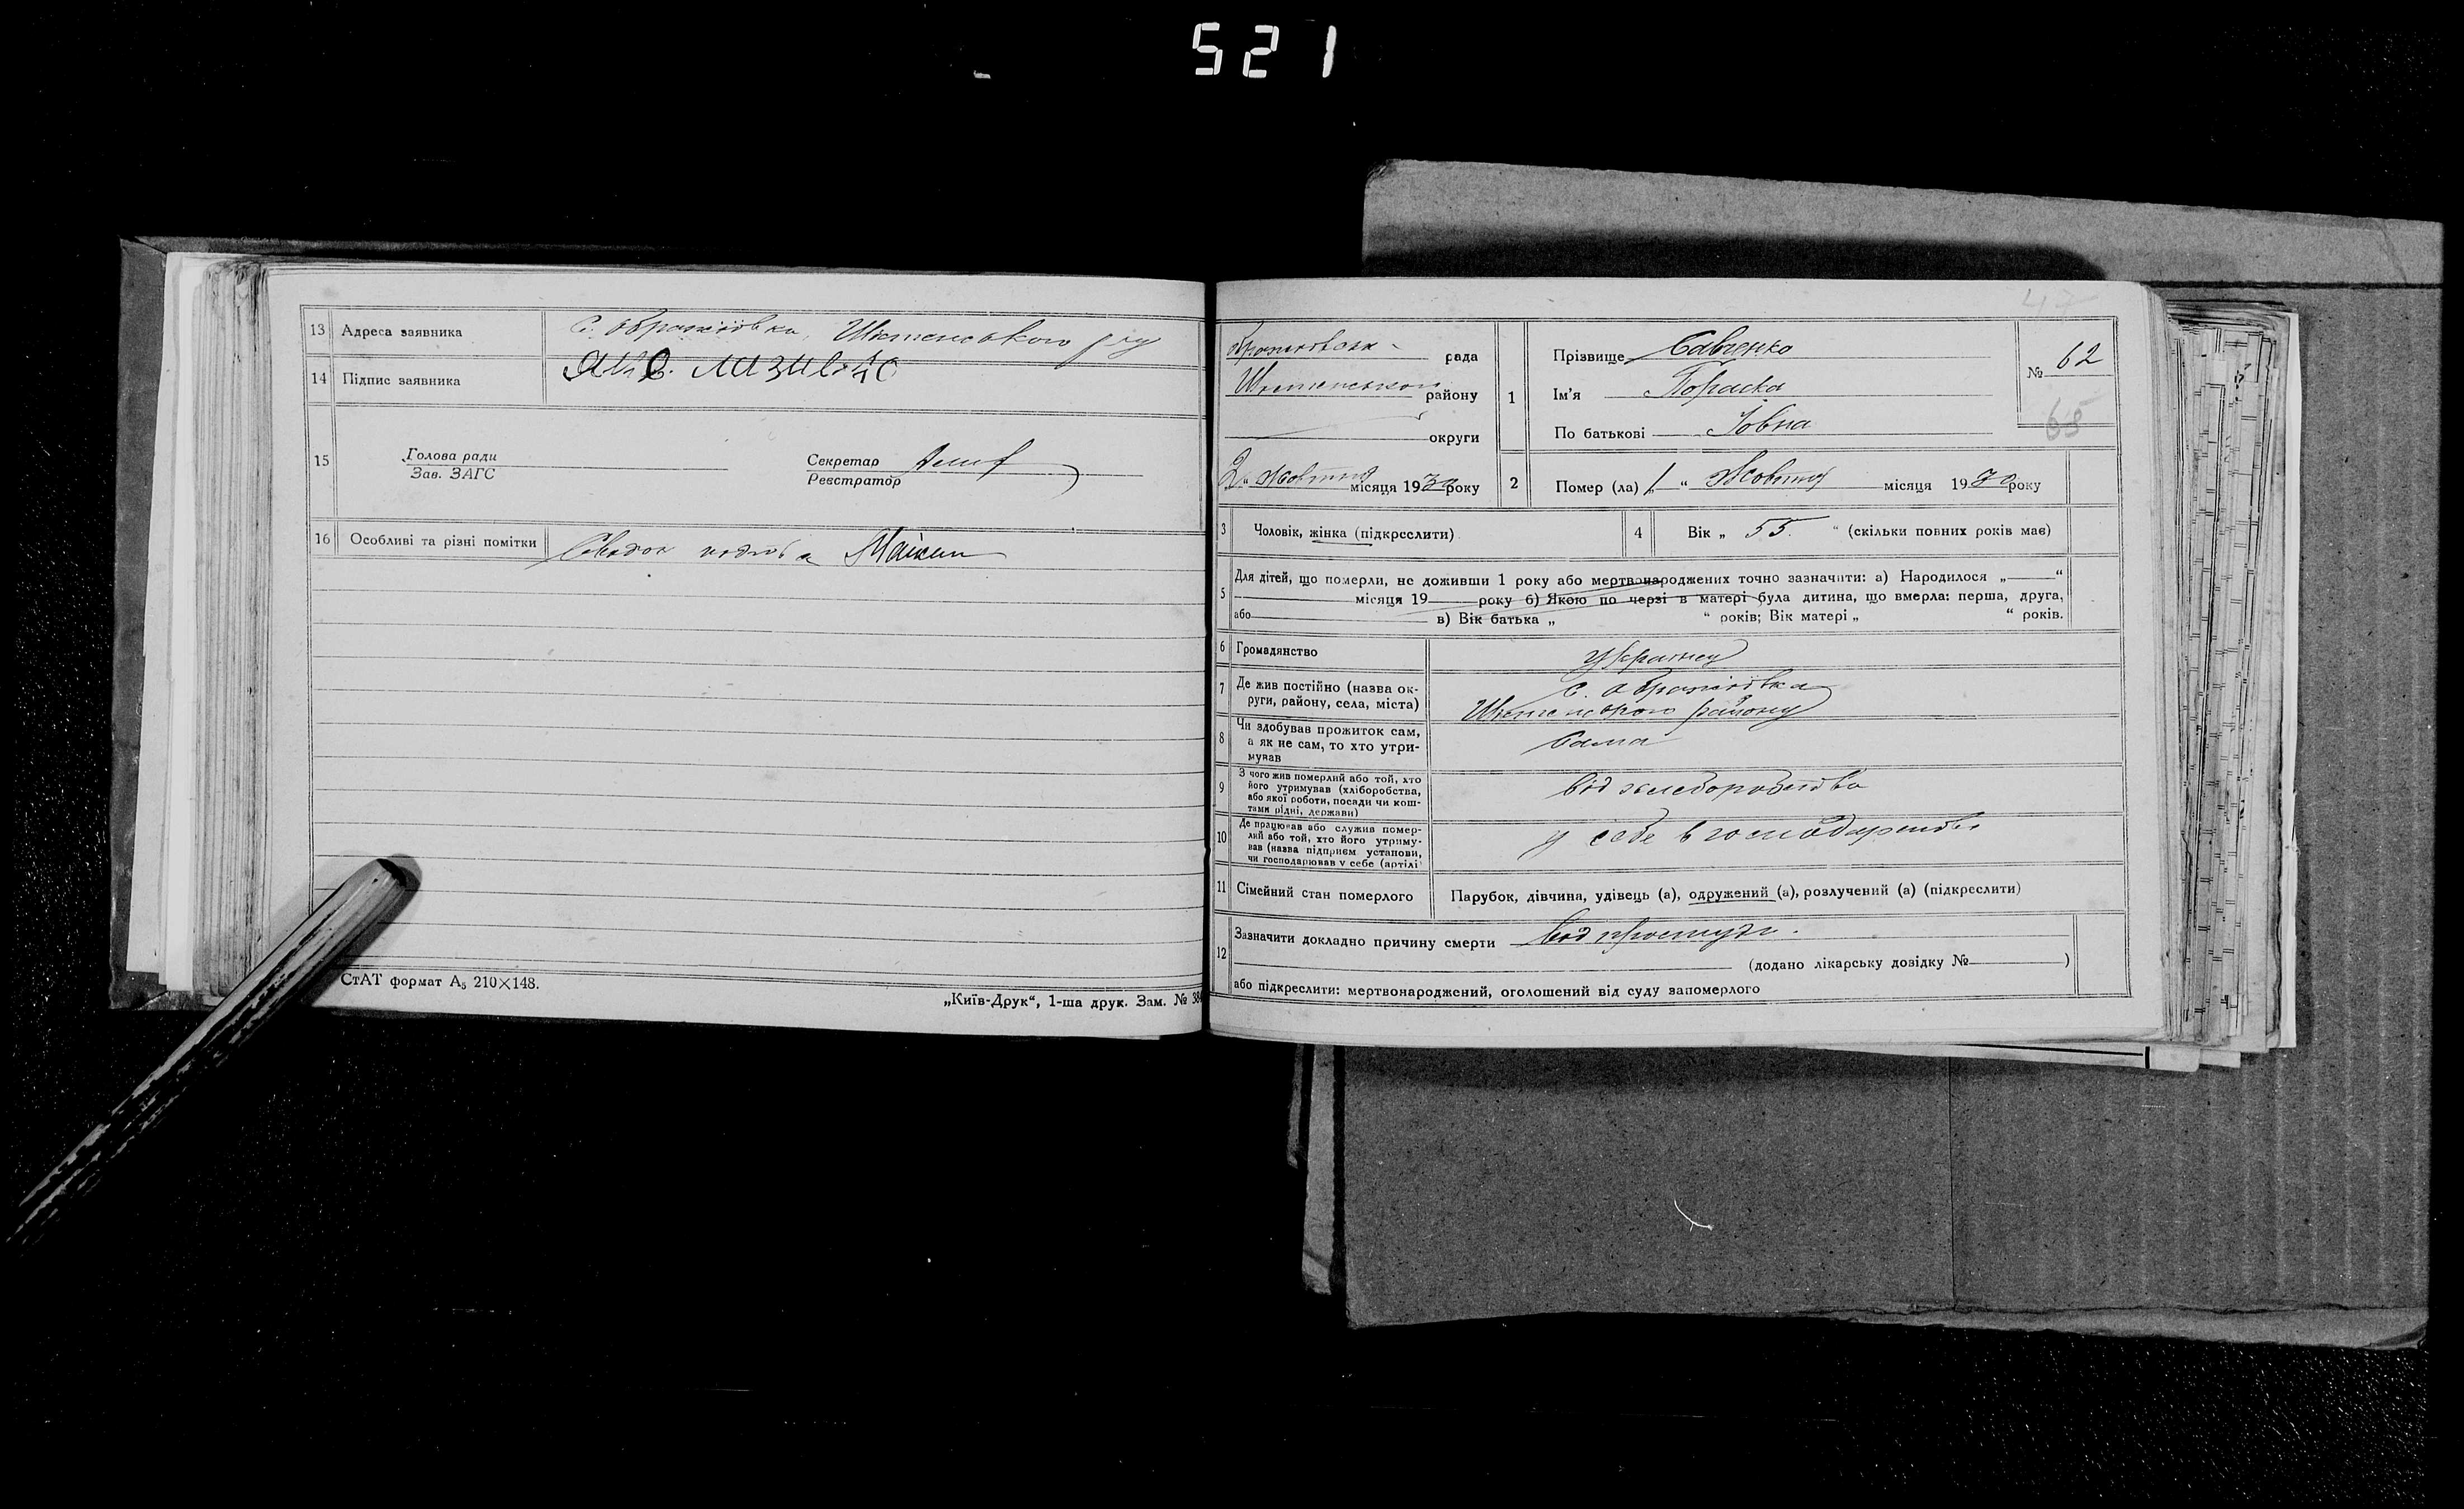 521
13 Адреса заявника
14 Підпис заявника
15 Голова ради
Зав. ЗАГС
Секретар
Реєстратор
16 Особливі та різні помітки
СтАТ формат А₅ 210×148.
„Київ-Друк“, 1-ша друк. Зам. №
47
рада
району
округи
2 " Жовтня місяця 1930 року
1 Прізвище Савченко
Ім'я Параска
По батькові Іовна
№ 62
65
2 Помер (ла) „ 1 " Жовтня місяця 1930 року
3 Чоловік, жінка (підкреслити)
4 Вік „ 55 " (скільки повних років має)
5 Для дітей, що померли, не доживши 1 року або мертвонароджених точно зазначити: а) Народилося „ “
місяця 19 року б) Якою по черзі в матері була дитина, що вмерла: перша, друга,
або в) Вік батька „ “ років; Вік матері „ “ років.
6 Громадянство
7 Де жив постійно (назва ок-
руги, району, села, міста)
с.
району
8 Чи здобував прожиток сам,
а як не сам, то хто утри-
мував
сама
9 З чого жив померлий або той, хто
його утримував (хліборобства,
або якої роботи, посади чи кош-
тами рідні, держави)
від
10 Де працював або служив помер-
лий або той, хто його утриму-
вав (назва підприєм установи,
чи господарював у себе (артілі
у себе в господарстві
11 Сімейний стан померлого
Парубок, дівчина, удівець (а), одружений (а), розлучений (а) (підкреслити)
12 Зазначити докладно причину смерти від простуди.
(додано лікарську довідку № )
або підкреслити: мертвонароджений, оголошений від суду запомерлого